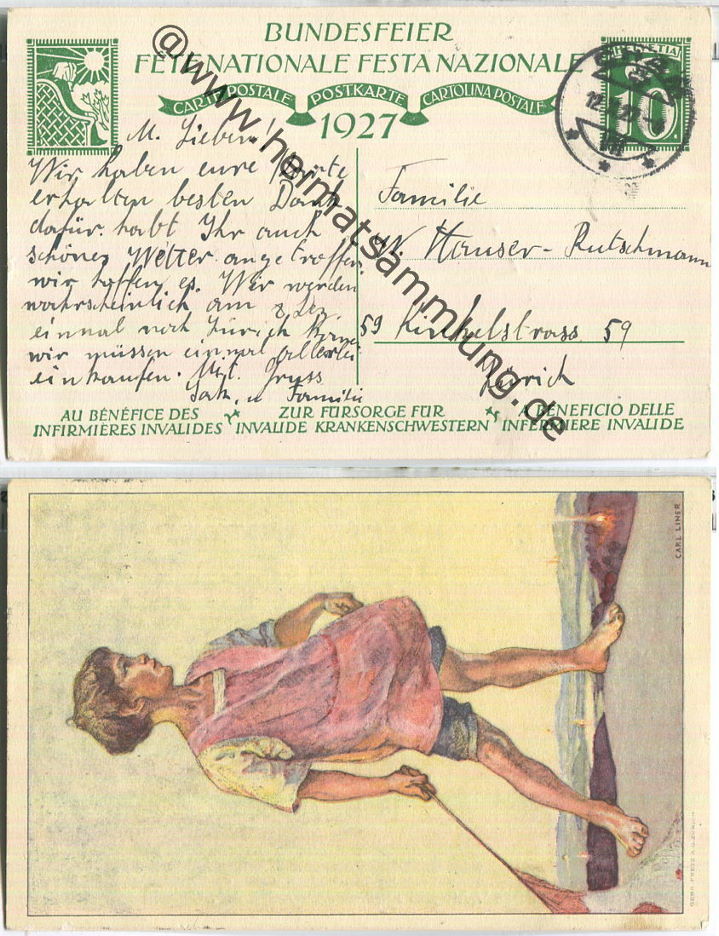 BUNDESFEIER
FÊTE NATIONALE FESTA NAZIONALE
CARTE POSTALE POSTKARTE CARTOLINA POSTALE
1927
HELVETIA
10
M. Lieben!
Wir haben eure Karte
erhalten besten Dank
dafür. habt Ihr auch
schönes Wetter angetroffen
wir hoffen es. Wir werden
wahrscheinlich am 8
einmal nach Zürich
wir müssen einmal allerlei
einkaufen. Mit Gruss
u Familie
Familie
W. Hauser-Rutschmann
59 59
Zürich
AU BÉNÉFICE DES
INFIRMIÈRES INVALIDES
ZUR FÜRSORGE FÜR
INVALIDE KRANKENSCHWESTERN
A BENEFICIO DELLE
INFERMIERE INVALIDE
@www.heimatsammlung.de
CARL LINER
GEBR. FRETZ A.G. ZÜRICH